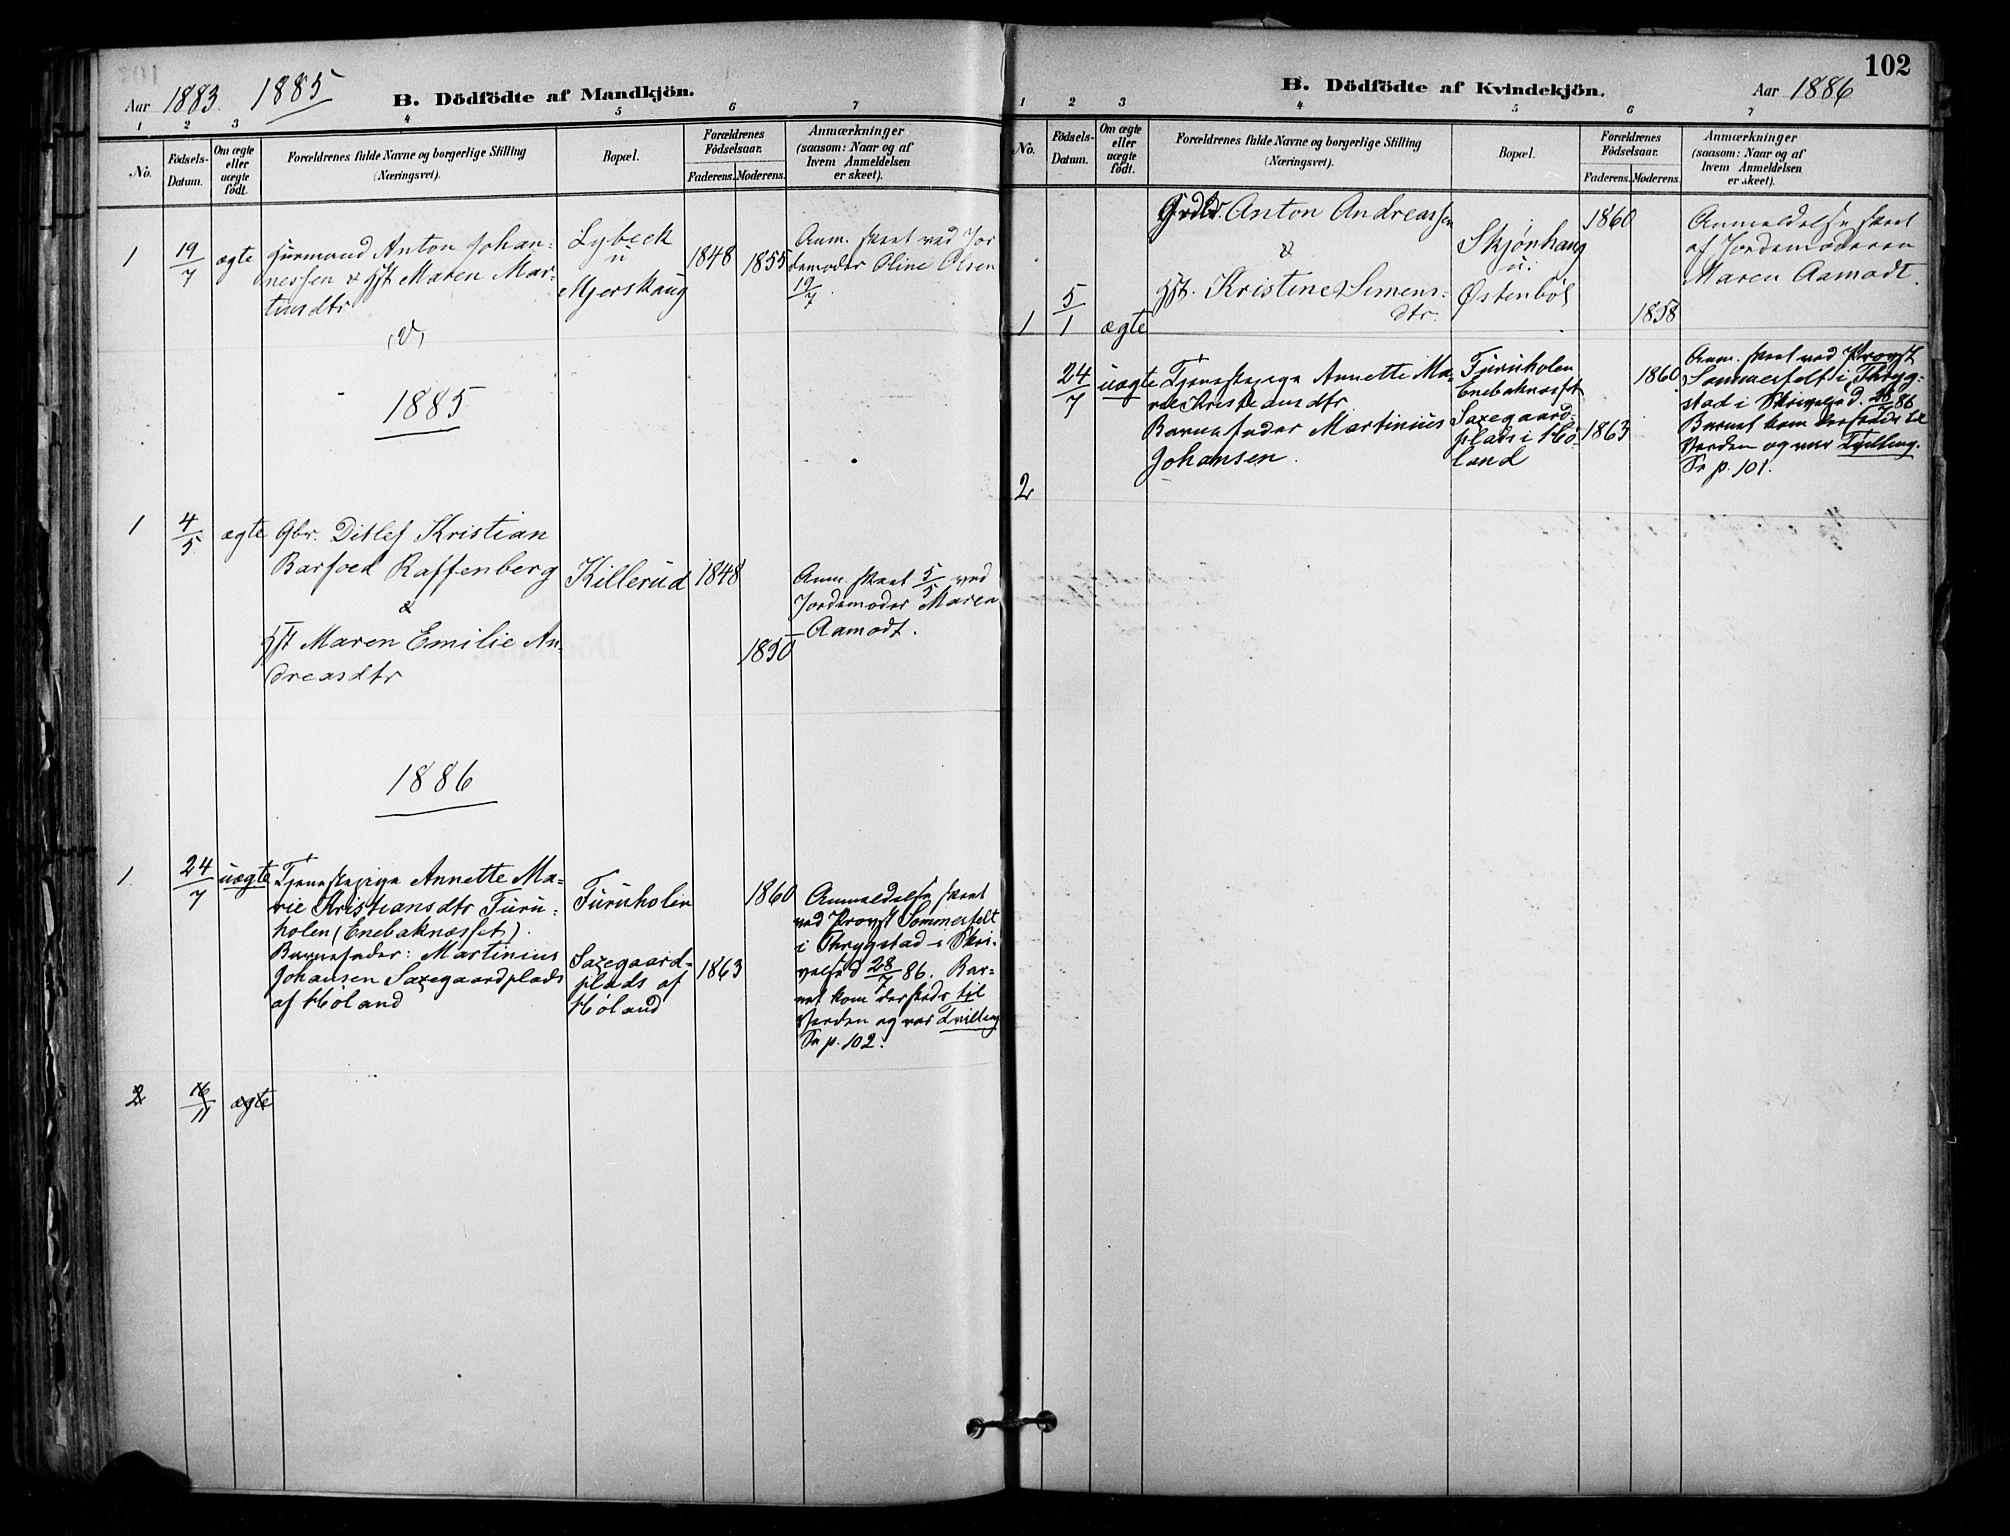 Aar 1883. 1885
B. Dödfödte af Mandkjön.
1 2 3 4 5 6 7
No.
Födsels-
Datum.
Om ægte
eller
uægte
födt.
Forældrenes fulde Navne og borgerlige Stilling
(Næringsvei).
Bopæl.
Forældrenes
Födselsaar.
Faderens. Moderens.
Anmærkninger
(saasom: Naar og af
hvem Anmeldelsen
er skeet).
1
19/7
ægte
Anton Johan-
nessen & Hst Maren Mar-
tinsdtr
(v)
Lybeck
u
Mjerskaug
1848
1855
Anm. skeet ved Jor
demoder Oline Olsen
19/7
1885
1
4/5
ægte
Gbr. Ditlef Kristian
Barfoed Raffenberg
&
Hst Maren Emilie An-
dreasdtr
Killerud
1848
1850
Anm. skeet 5/5 ved
Jordemoder Maren
Aamodt.
1886
1
24/7
uægte
Tjenestepige Annette Ma-
rie Kristiansdtr Furu-
holen (Enebaknesset).
Barnefader: Martinius
Johansen Saxegaardplads
af Høland
Furuholen
Saxegaard-
plads af
Høland
1860
1863
Anmeldelse skeet
ved Provst Sommerfelt
i Thrygstad i Skri-
velse d 28/7 86. Bar-
net kom dersteds til
Verden og var Tvilling
Se p. 102.
2
16/11
ægte
102
B. Dödfödte af Kvindekjön.
Aar 1886
1 2 3 4 5 6 7
No.
Födsels-
Datum.
Om ægte
eller
uægte
födt.
Forældrenes fulde Navne og borgerlige Stilling
(Næringsvei).
Bopæl.
Forældrenes
Födselsaar.
Faderens. Moderens.
Anmærkninger
(saasom: Naar og af
hvem Anmeldelsen
er skeet).
1
5/1
ægte
Anton Andreassen
&
Hst. Kristine Simens-
dtr.
Skjønhaug
u.
Østenbøl
1860
1858
Anmeldelse skeet
af Jordemoderen
Maren Aamodt.
2
24/7
uægte
Tjenestepige Annette Ma-
rie Kristiansdtr
Barnefader Martinius
Johansen.
Furuholen
Enebaknesset
Saxegaard-
plads i Hø-
land
1860
1863
Anm. skeet ved Provst
Sommerfelt i Thryg-
stad i Skrivelse d. 28/7 86
Barnet kom dersteds til
Verden og var Tvilling.
Se p. 101.